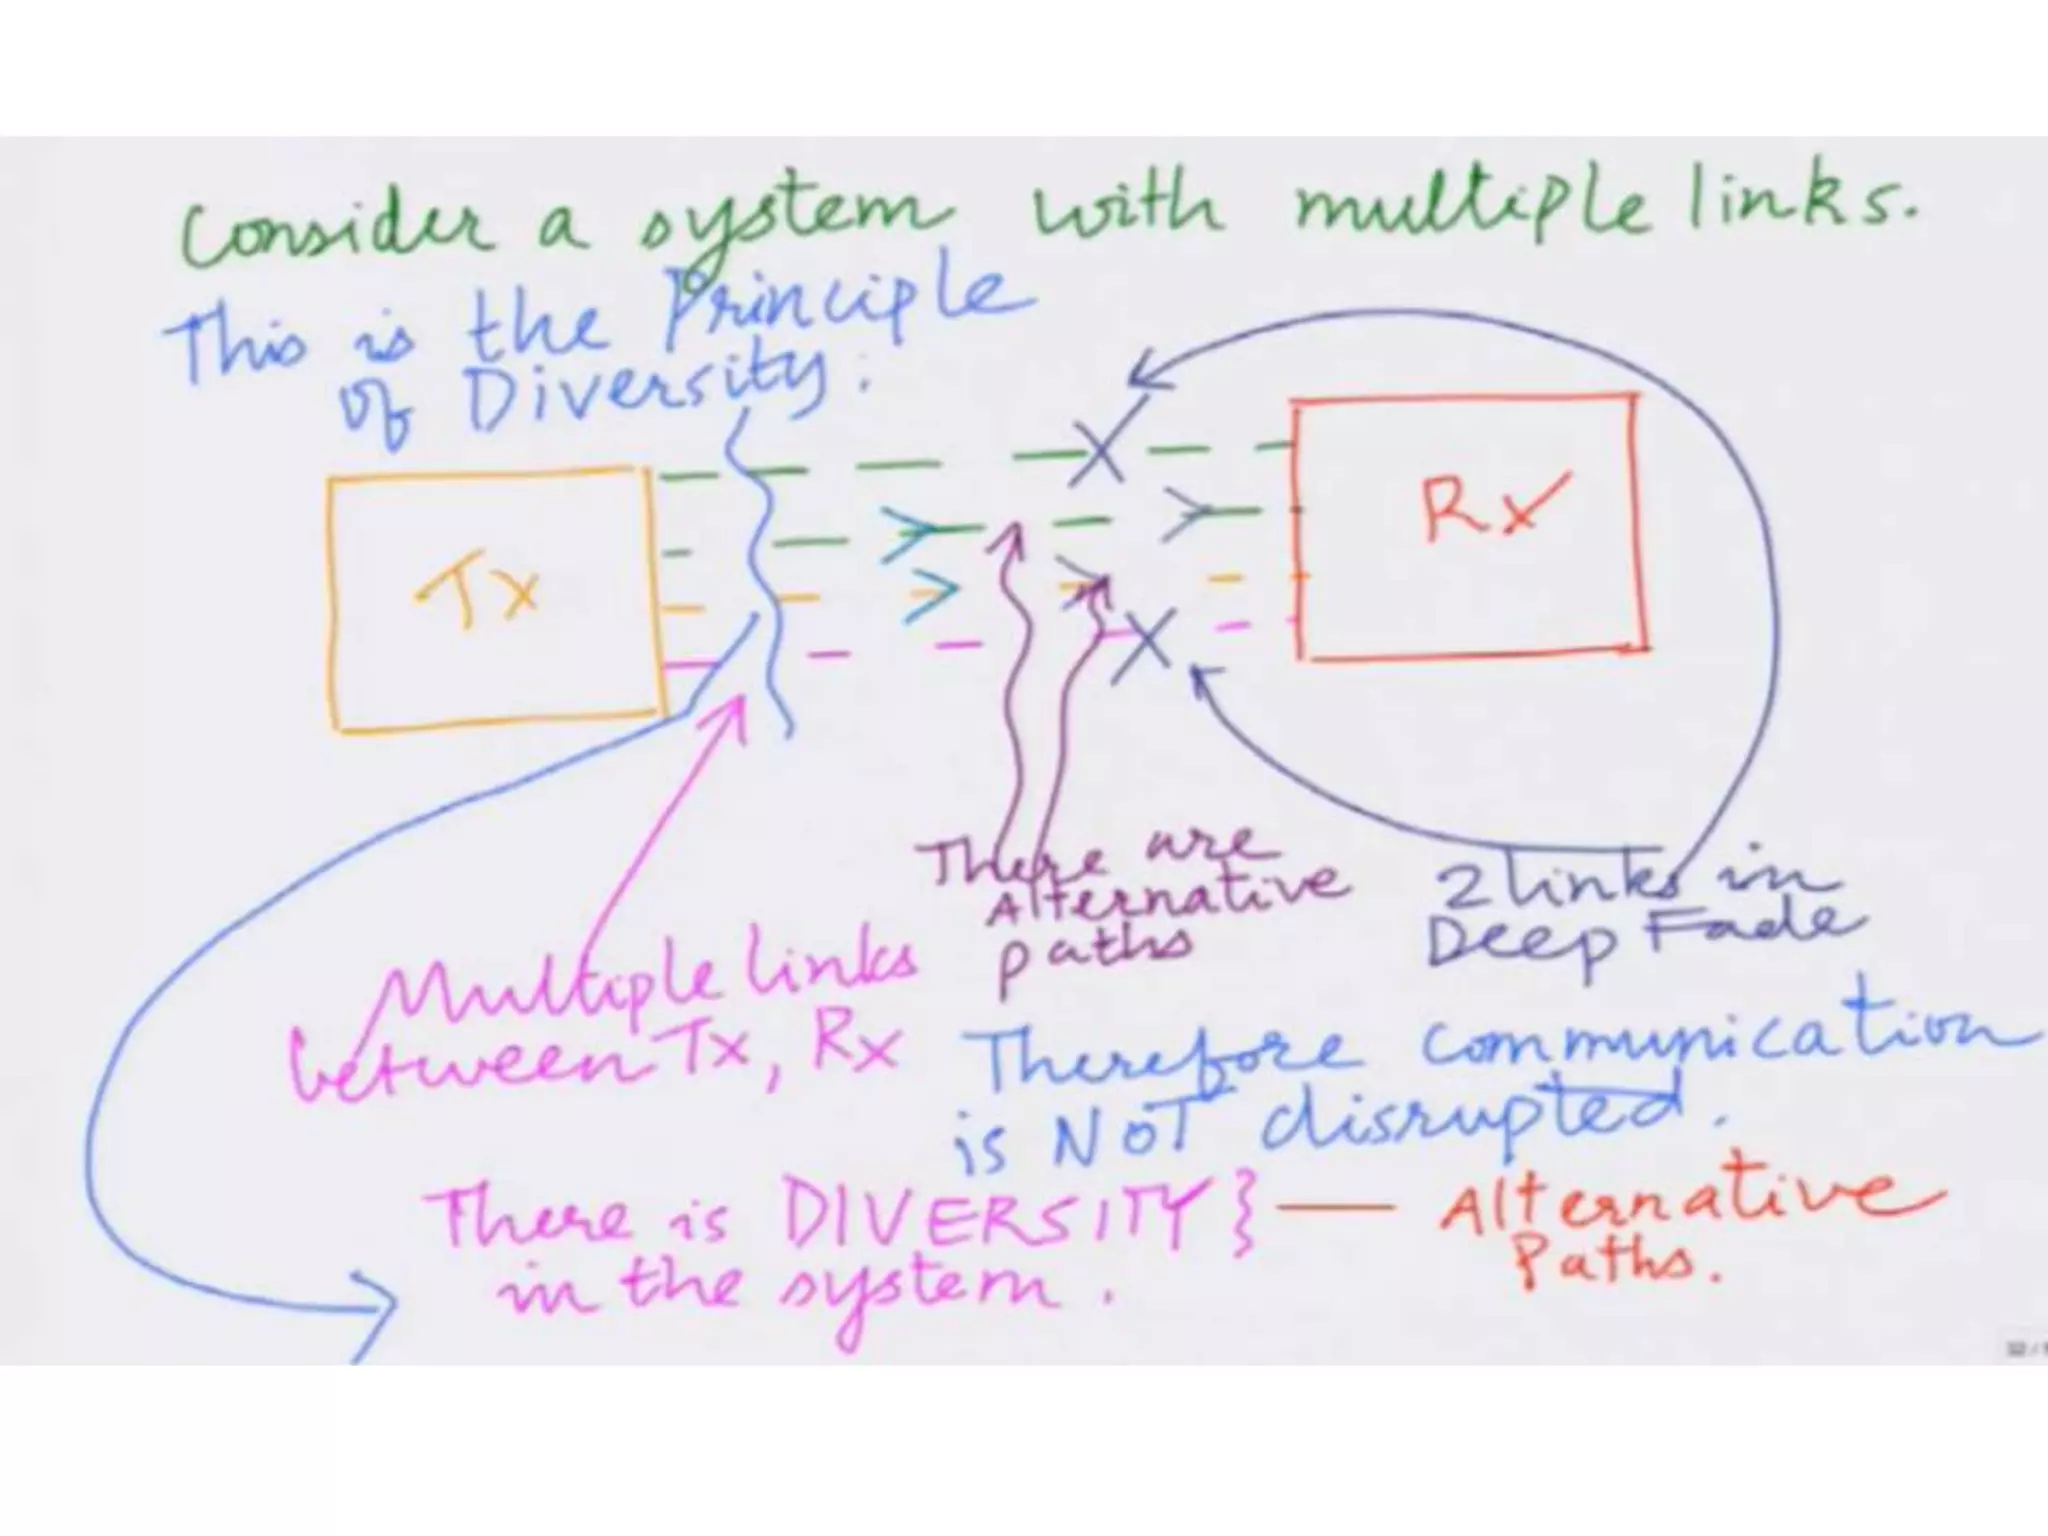 Consider a system with multiple links.
This is the Principle
of Diversity.
Tx
Rx
There are
Alternative
paths
2 links in
Deep Fade
Multiple links
between Tx, Rx
Therefore communication
is NOT disrupted.
There is DIVERSITY } — Alternative
in the system.
Paths.